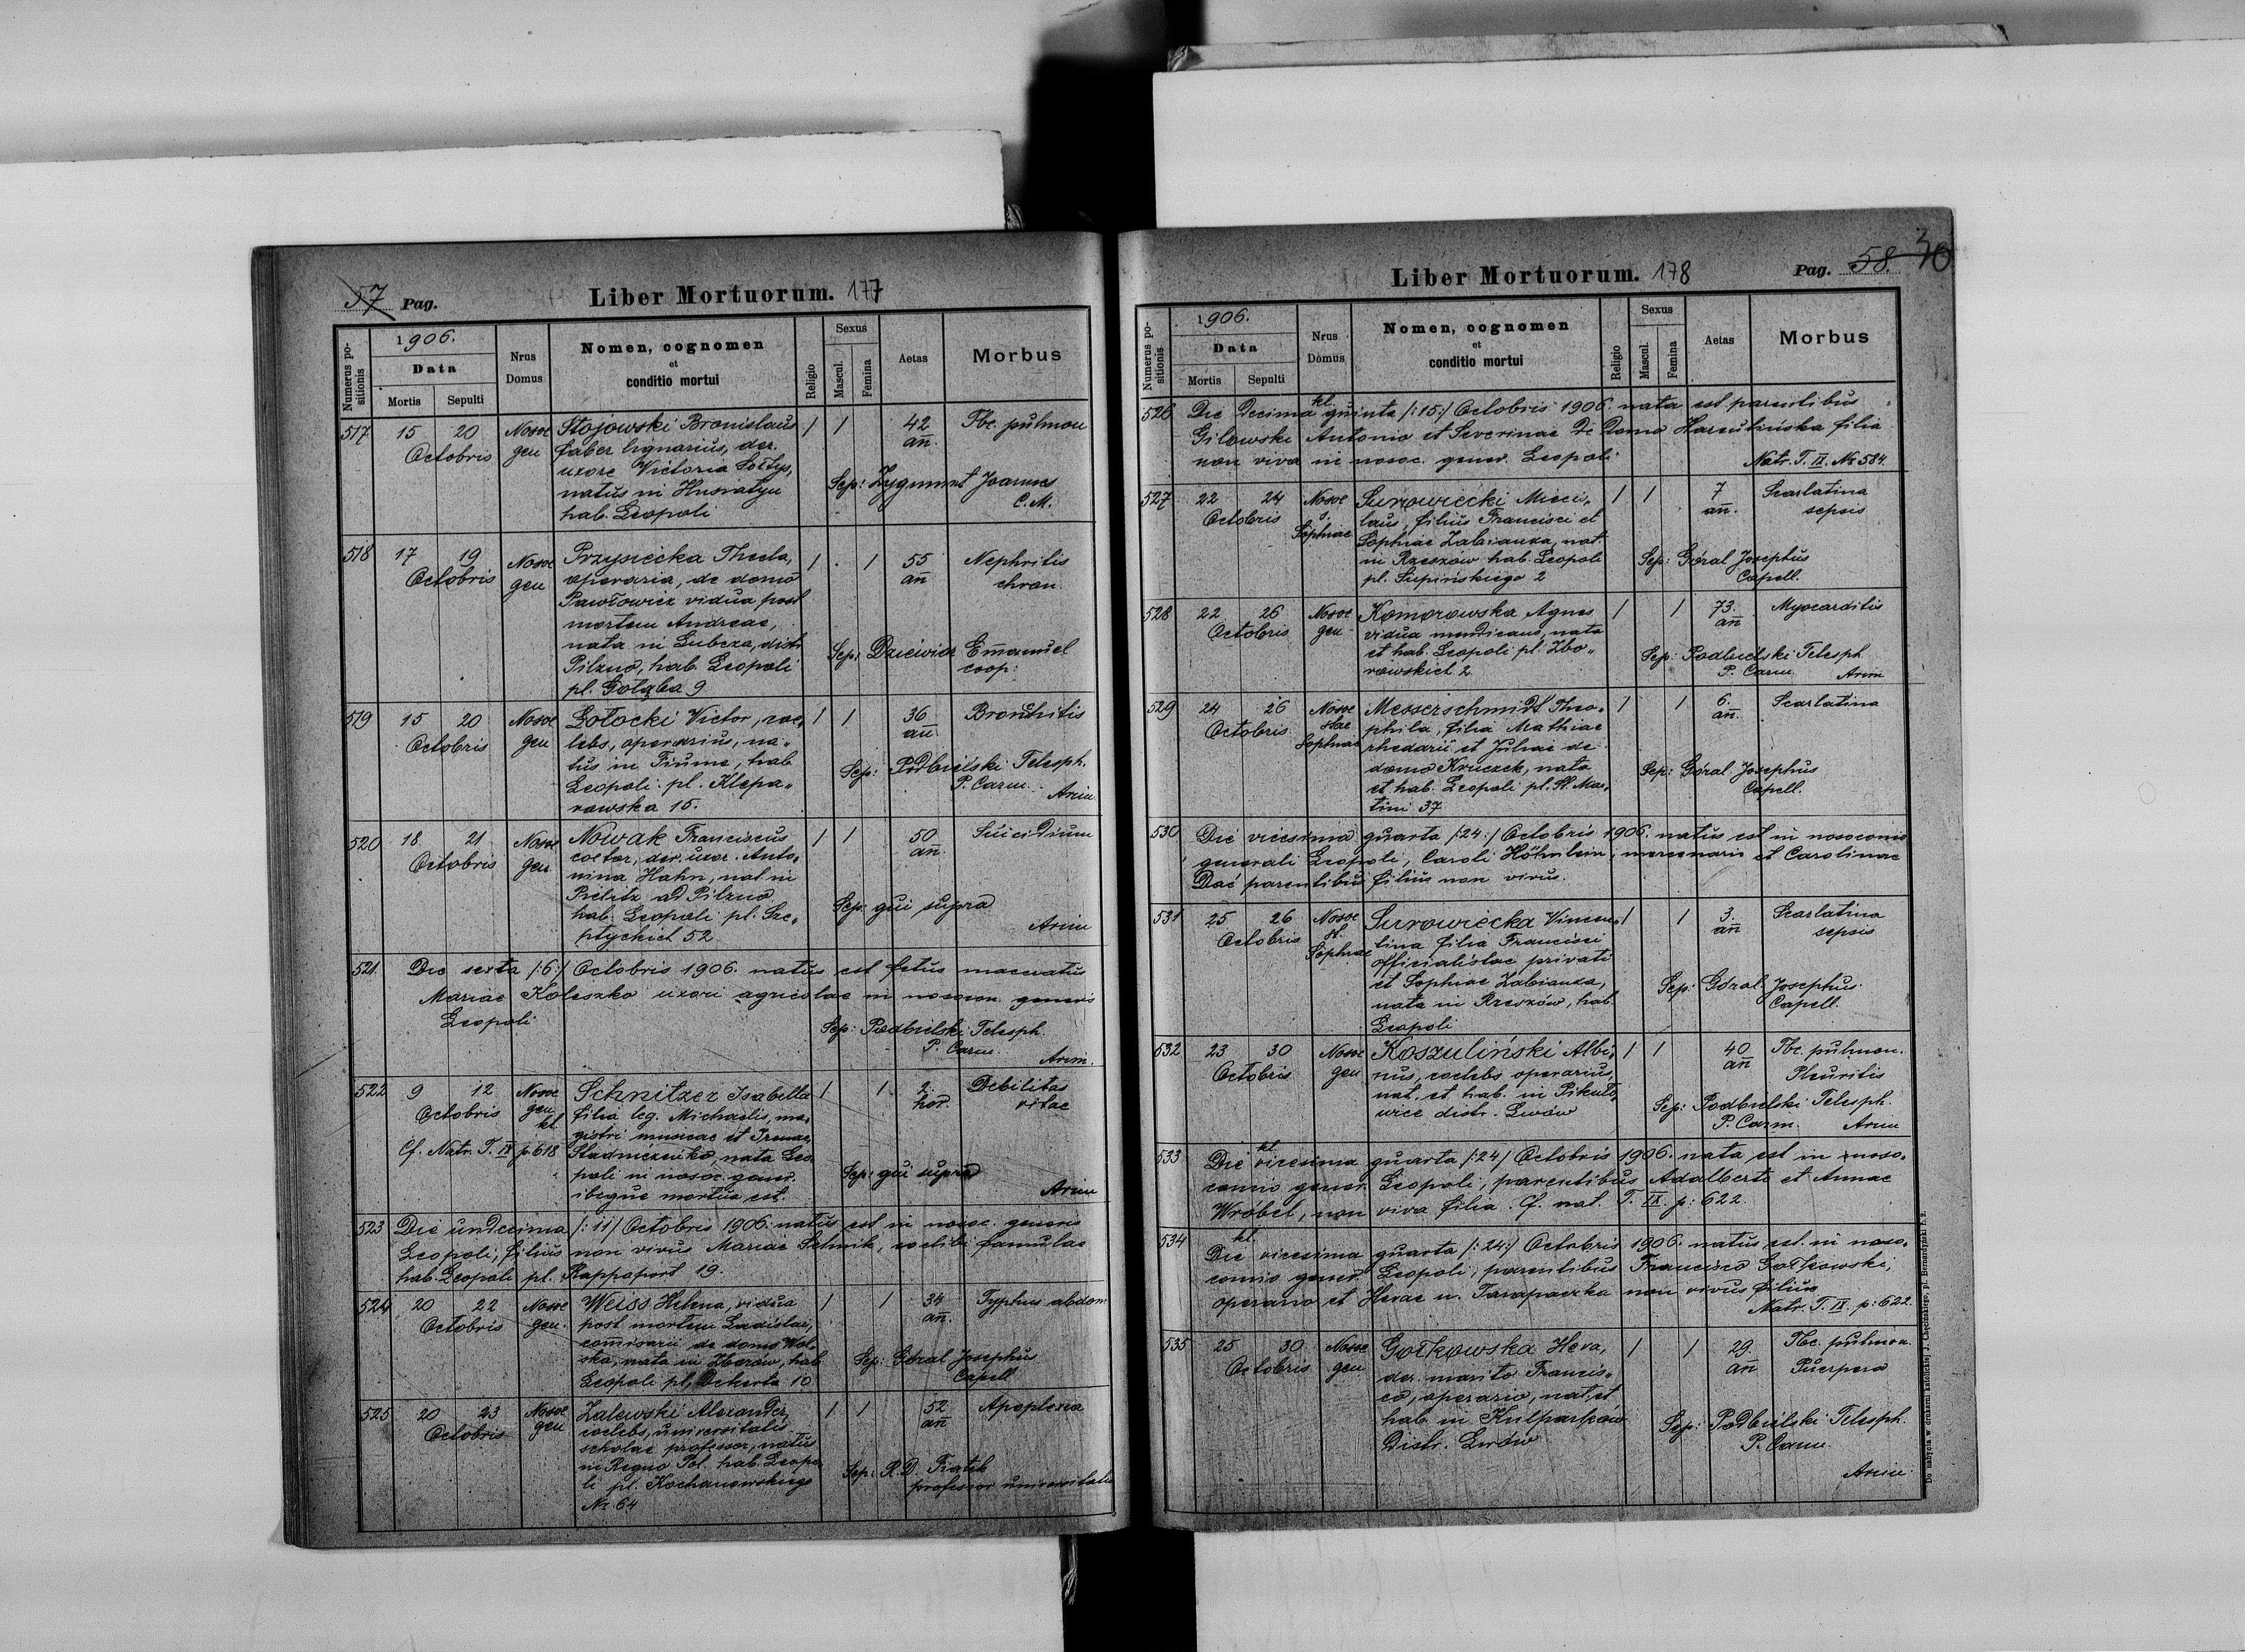 57 Pag.
Liber Mortuorum. 177
Numerus positionis
1906.
Data
Mortis
Sepulti
Nrus Domus
Nomen, cognomen
et
conditio mortui
Religio
Sexus
Mascul.
Femina
Aetas
Morbus
517 15 20 Nosoc Stojowski Bronislaus / / 42 Tbc. pulmon
Octobris gen faber lignarius, der. an.
uxore Victoria Sołtys,
natus in Husiatyn Sep: Zygmunt Joannes
hab. Leopoli C. M.
518 17 19 Nosoc Przysiecka Thecla, / . / 55 Nephritis
Octobris gen operaria, de domo an chron.
Pawłowicz vidua post
mortem Andreae,
nata in Lubcza, distr. Sep: Dziewior Emanuel
Pilzno, hab. Leopoli coop:
pl. Gołąba 9
519 15 20 Nosoc Łotocki Victor, coe„ / / 36 Bronchitis
Octobris gen lebs, operarius, na„ an.
tus in Fiume, hab Sep: Podbielski Telesph.
Leopoli pl. Klepa„ P. Carm.
rowska 15. Arim
520 18 21 Nosoc Nowak Franciscus / / 50 Suicidium
Octobris gen coctor, der. uxor. Anto„ an.
nina Hahn, nat. in
Prelitz ad Pilzno
hab. Leopoli pl. Sze„ Sep: qui supra
ptyckich 52 Arim
521. Die sexta /:6:/ Octobris 1906. natus est fetus maceratus
Mariae Koleszko uxori agricolae in nosocom generis
Leopoli Sep: Podbielski Telesph.
P. Carm.
Arim.
522 9 12 Nosoc Schnitzer Isabella / / 2. Debilitas
Octobris gen filia leg. Michaelis, ma„ hor. vitae
kl. gistri musicae et Irenae
Cf. Natr. T. IX p. 618 Stadniczenko, nata Leo
poli in nosoc. gener. Sep: qui supra
ibique mortua est. Arim
523 Die undecima /:11/ Octobris 1906. natus est in nosoc. generis
Leopoli, filius non vivus Mariae Selmik, coelibi famulae
hab. Leopoli pl. Rappaport 19.
524 20 22 Nosoc Weiss Helena, vidua / / 34 Typhus abdom
Octobris gen. post mortem Ladislai, an.
comisarii de domo Wol„
ska, nata in Zborów, hab Sep: Góral Josephus
Leopoli pl. Dekerta 10 Capell
525 20 23 Nosoc Zalewski Alexander, / / 52 Apoplexia
Octobris gen coelebs, universitatis an
scholae professor, natus
in Regno Pol. hab. Leopo Sep: R. D. Fiatek
li pl. Kochanowskiego professor universitatis
Nr 64
Liber Mortuorum. 178
Pag. 58. 30
Numerus positionis
1906.
Data
Mortis
Sepulti
Nrus Domus
Nomen, cognomen
et
conditio mortui
Religio
Sexus
Mascul.
Femina
Aetas
Morbus
kl.
526 Die Decima quinta /:15:/ Octobris 1906. nata est parentibus
Gilowski Antonio et Severinae de Domo Harcutińska filia
non viva in nosoc. gener. Leopoli
Natr. T. IX. Nr 584.
527 22 24 Nosoc Surowiecki Mieci„ / / 7 Scarlatina
Octobris s. laus, filius Francisci et an. sepsis
Sophiae Sophiae Zabianka, nat.
in Rzeszów hab. Leopoli Sep: Góral Josephus
pl. Supińskiego 2 Capell.
528 22 26 Nosoc Komorowska Agnes / / 73. Myocarditis
Octobris gen vidua mendicans, nata an
et hab. Leopoli pl. Zbo„ Sep: Podbielski Telesph.
rowskich 2 P. Carm. Arim
529 24 26 Nosoc Messerschmidt Theo„ / / 6. Scarlatina
Octobris stae phila, filia Mathiae an.
Sophiae rhedarii et Juliae de
domo Kruczek, nata Sep: Góral Josephus
et hab. Leopoli pl. St. Mar„ Capell.
tini 37
530 Die vicesima quarta /:24:/ Octobris 1906. natus est in nosocomio
generali Leopoli, Caroli Höhnlein, mercenarii et Carolinae
Dać parentibus filius non vivus.
531 25 26 Nosoc Surowiecka Vincen„ / / 3. Scarlatina
Octobris st. tina filia Francisci an sepsis
Sophiae officialistae privati
et Sophiae Zabianka, Sep: Góral Josephus
nata in Rzeszów, hab. Capell.
Leopoli
532 23 30 Nosoc Koszuliński Albi„ / / 40 Tbc. pulmon.
Octobris gen nus, coelebs operarius, an Pleuritis
nat. et hab. in Pikuło„ Sep: Podbielski Telesph.
wice distr. Lwów P. Carm. Arim
kl.
533 Die vicesima quarta /:24/ Octobris 1906. nata est in noso„
comio gener. Leopoli, parentibus Adalberto et Annae
Wróbel, non viva filia. Cf. nat. T. IX p: 622.
kl.
534 Die vicesima quarta /:24:/ Octobris 1906. natus est in noso„
comio gener. Leopoli, parentibus Francisco Gołkowski,
operario et Hevae n. Tarapaczka non vivus filius
Natr. T. IX. p: 622.
535 25 30 Nosoc Gołkowska Heva, / / 29. Tbc. pulmon.
Octobris gen der. marito Francis„ an Puerpera
co, operario, nat. et
hab. in Kulparków Sep: Podbielski Telesph.
Distr. Lwów P. Carm.
Arim.
Do nabycia w drukarni katolickiej J. Chęcińskiego, pl. Bernardyński l. 2.